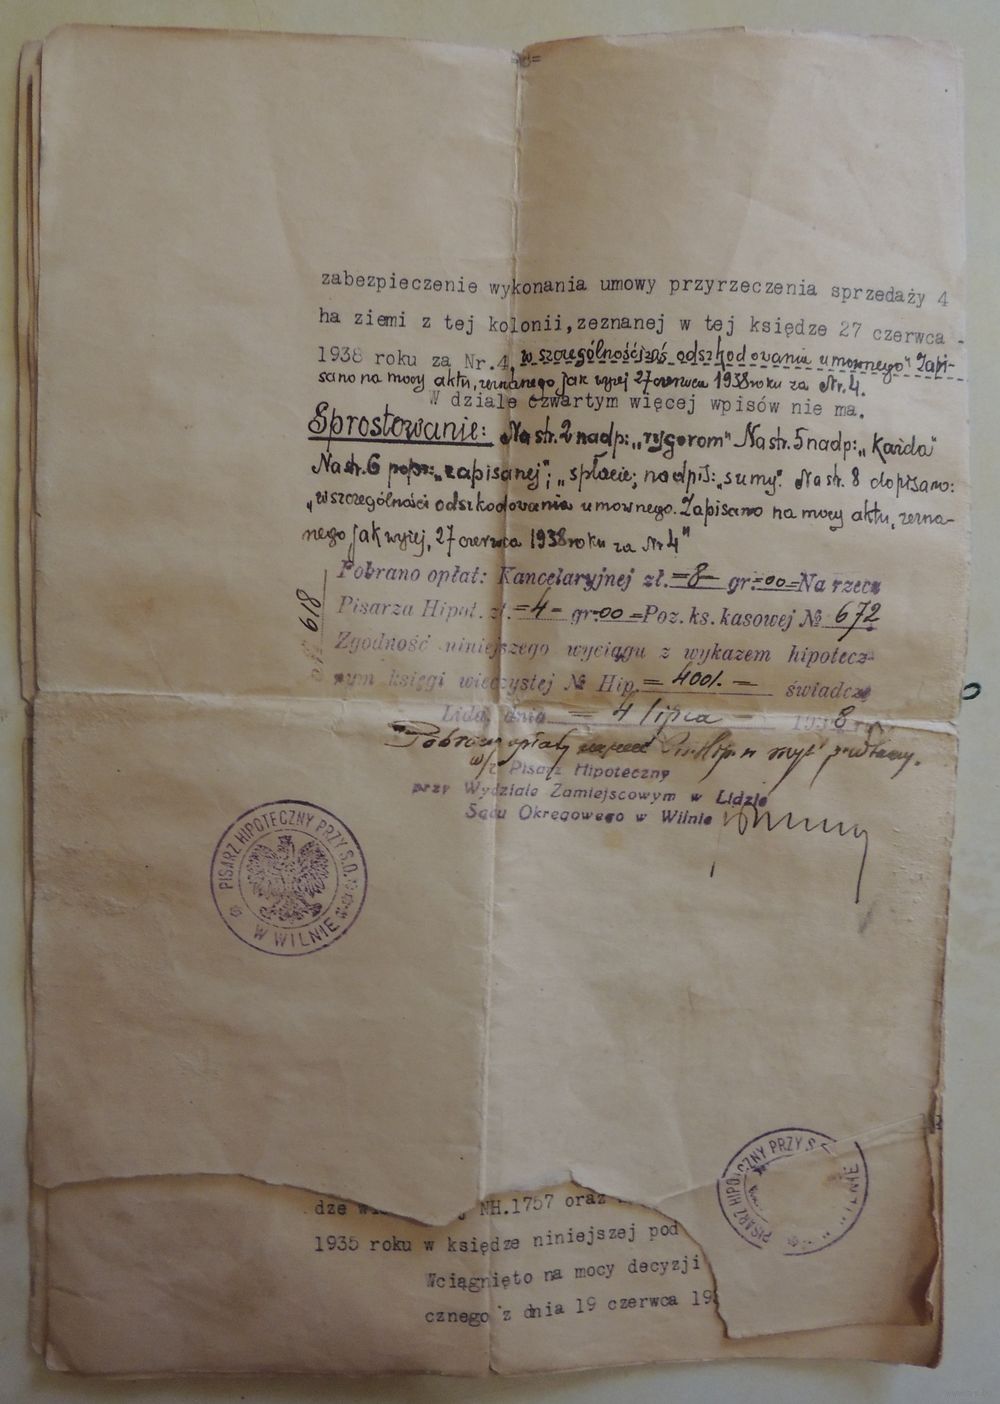 =8=
zabezpieczenie wykonania umowy przyrzeczenia sprzedaży 4
ha ziemi z tej kolonii, zeznanej w tej księdze 27 czerwca
1938 roku za Nr.4, w szczególności zaś odszkodowania umownego" Zapi-
sano na mocy aktu, zeznanego jak wyżej 27 czerwca 1938 roku za Nr. 4.
W dziale czwartym więcej wpisów nie ma.
Sprostowanie: Na str. 2 nadp: „rygorom" Na str. 5 nadp: „Każda"
Na str. 6 popr: „zapisanej"; „spłacie; nadpis: „sumy". Na str. 8 dopisano:
„w szczególności odszkodowania umownego. Zapisano na mocy aktu, zezna-
nego jak wyżej, 27 czerwca 1938 roku za Nr 4"
Pobrano opłat: Kancelaryjnej zł. =8= gr. =00= Na rzecz
Pisarza Hipot. zł. =4= gr. =00= Poz. ks. kasowej № 672
618
Zgodność niniejszego wyciągu z wykazem hipotecz-
nym księgi wieczystej № Hip. = 4001. = świadczę
Lida, dnia = 4 lipca = 1938 r.
Pobrano opłaty
w/z Pisarz Hipoteczny
przy Wydziale Zamiejscowym w Lidzie
Sądu Okręgowego w Wilnie
PISARZ HIPOTECZNY PRZY S.O.
W WILNIE
PISARZ HIPOTECZNY PRZY S.
dze NH.1757 oraz
1935 roku w księdze niniejszej pod
Wciągnięto na mocy decyzji
cznego z dnia 19 czerwca 19